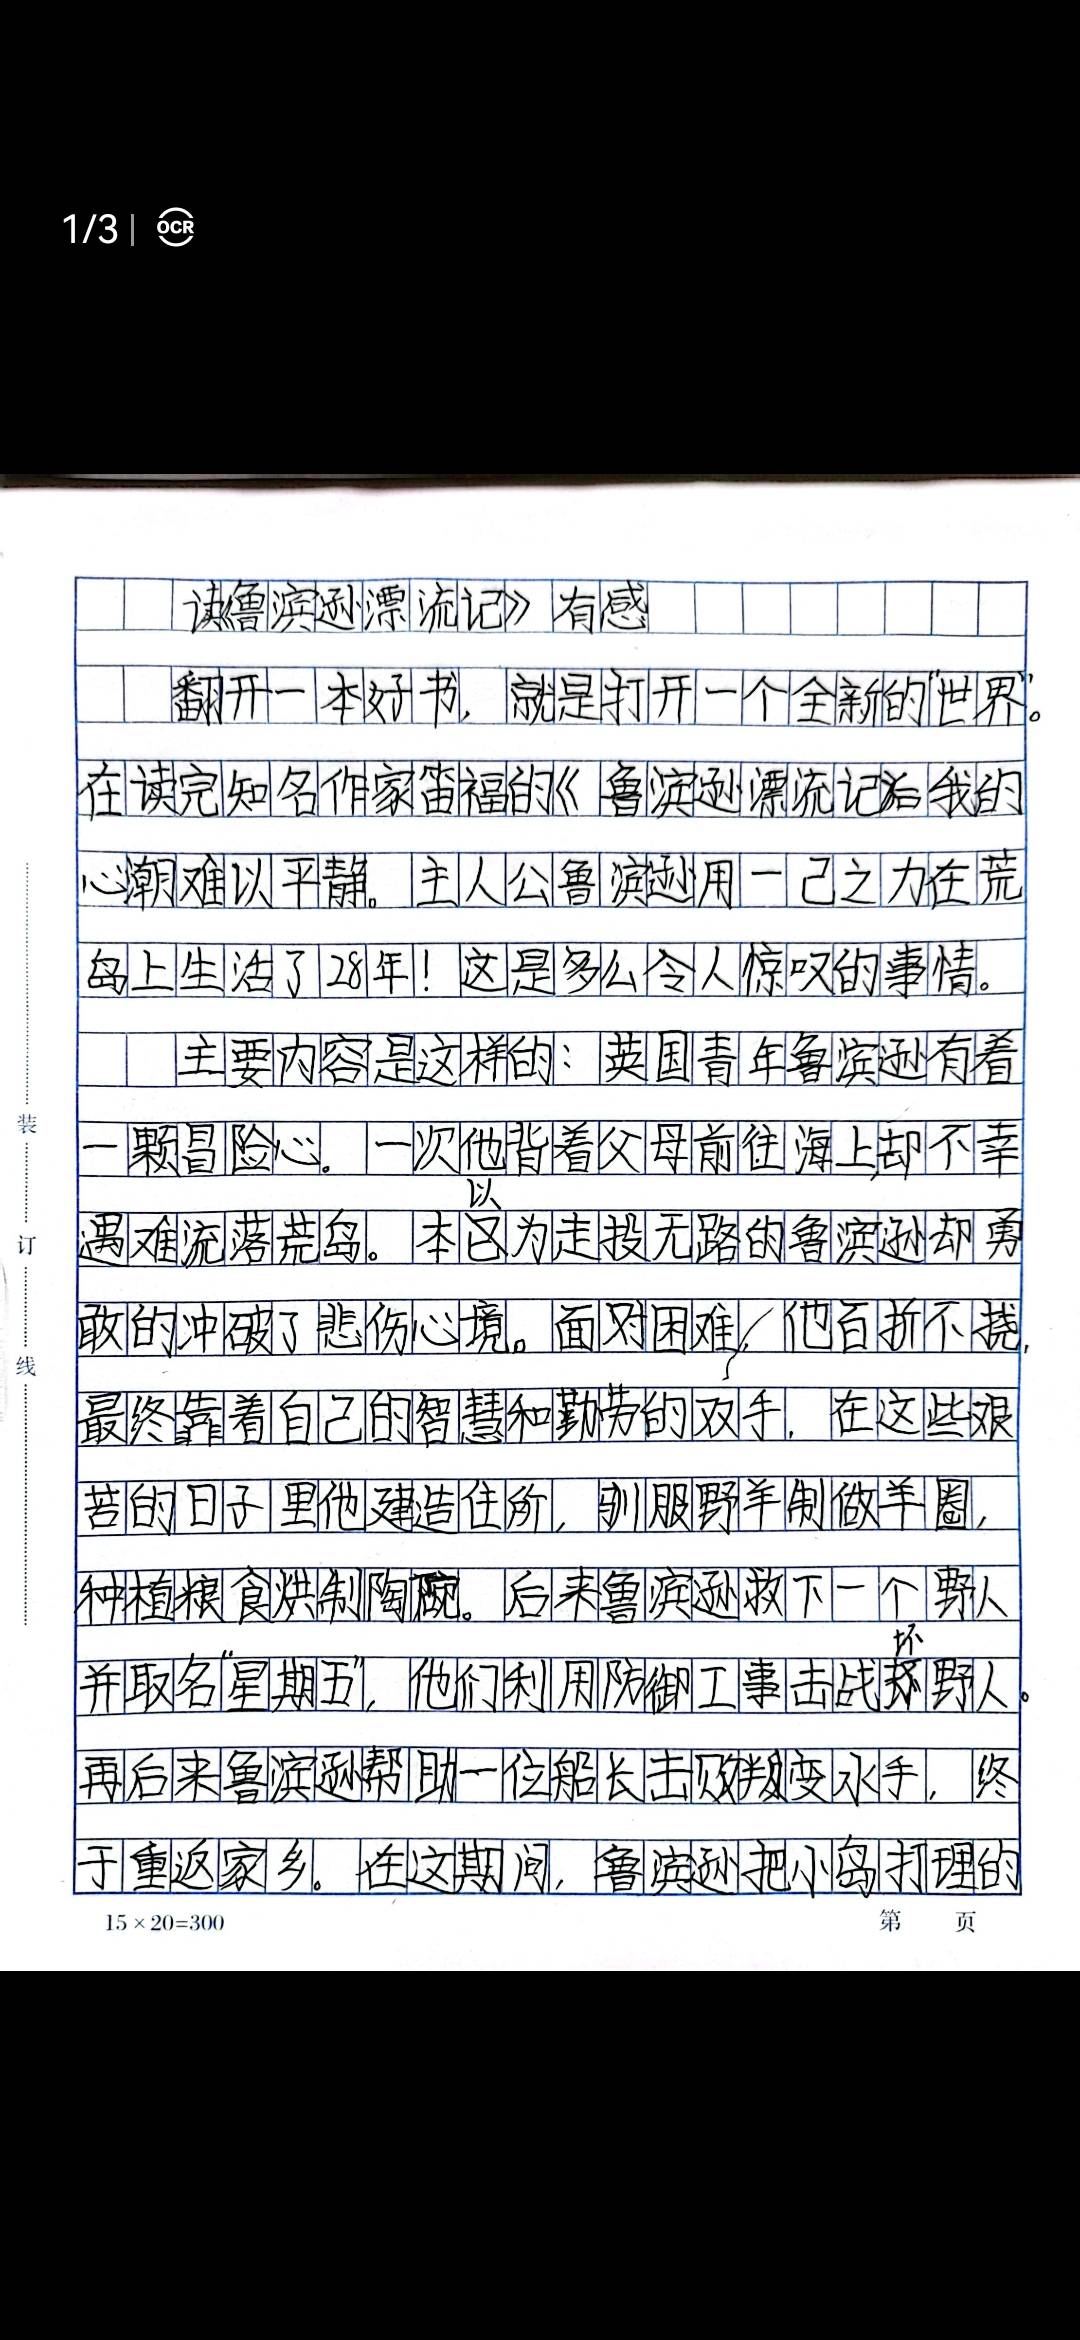 1/3 | OCR
读《鲁滨逊漂流记》有感
翻开一本好书，就是打开一个全新的“世界”。
在读完知名作家笛福的《鲁滨逊漂流记》后我的
心潮难以平静。主人公鲁滨逊用一己之力在荒
岛上生活了28年！这是多么令人惊叹的事情。
主要内容是这样的：英国青年鲁滨逊有着
一颗冒险心。一次他背着父母前往海上,却不幸
遇难流落荒岛。本以为走投无路的鲁滨逊却勇
敢的冲破了悲伤心境。面对困难，他百折不挠，
最终靠着自己的智慧和勤劳的双手，在这些艰
苦的日子里他建造住所，驯服野羊制做羊圈，
种植粮食烘制陶碗。后来鲁滨逊救下一个野人
并取名“星期五”，他们利用防御工事击战坏野人。
再后来鲁滨逊帮助一位船长击败叛变水手，终
于重返家乡。在这期间，鲁滨逊把小岛打理的
装
订
线
15×20=300
第 页